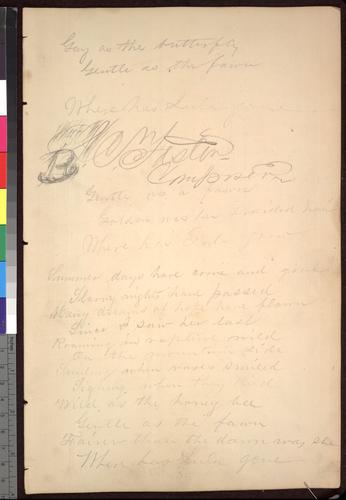 Gay as the butterfly
Gentle as the fawn
Where has Lula gone
Composer
Gentle as a fawn
Golden was her braided hair
Where has Lula gone
Summer days have come and gone
Starry nights have passed
Many dreams of hope have flown
Since I saw her last
Roaming in rapture wild
On the mountain side
Smiling when roses smiled
Sighing when they died
Wild as the honey bee
Gentle as the fawn
Fairer than the dawn was she
Where has Lula gone